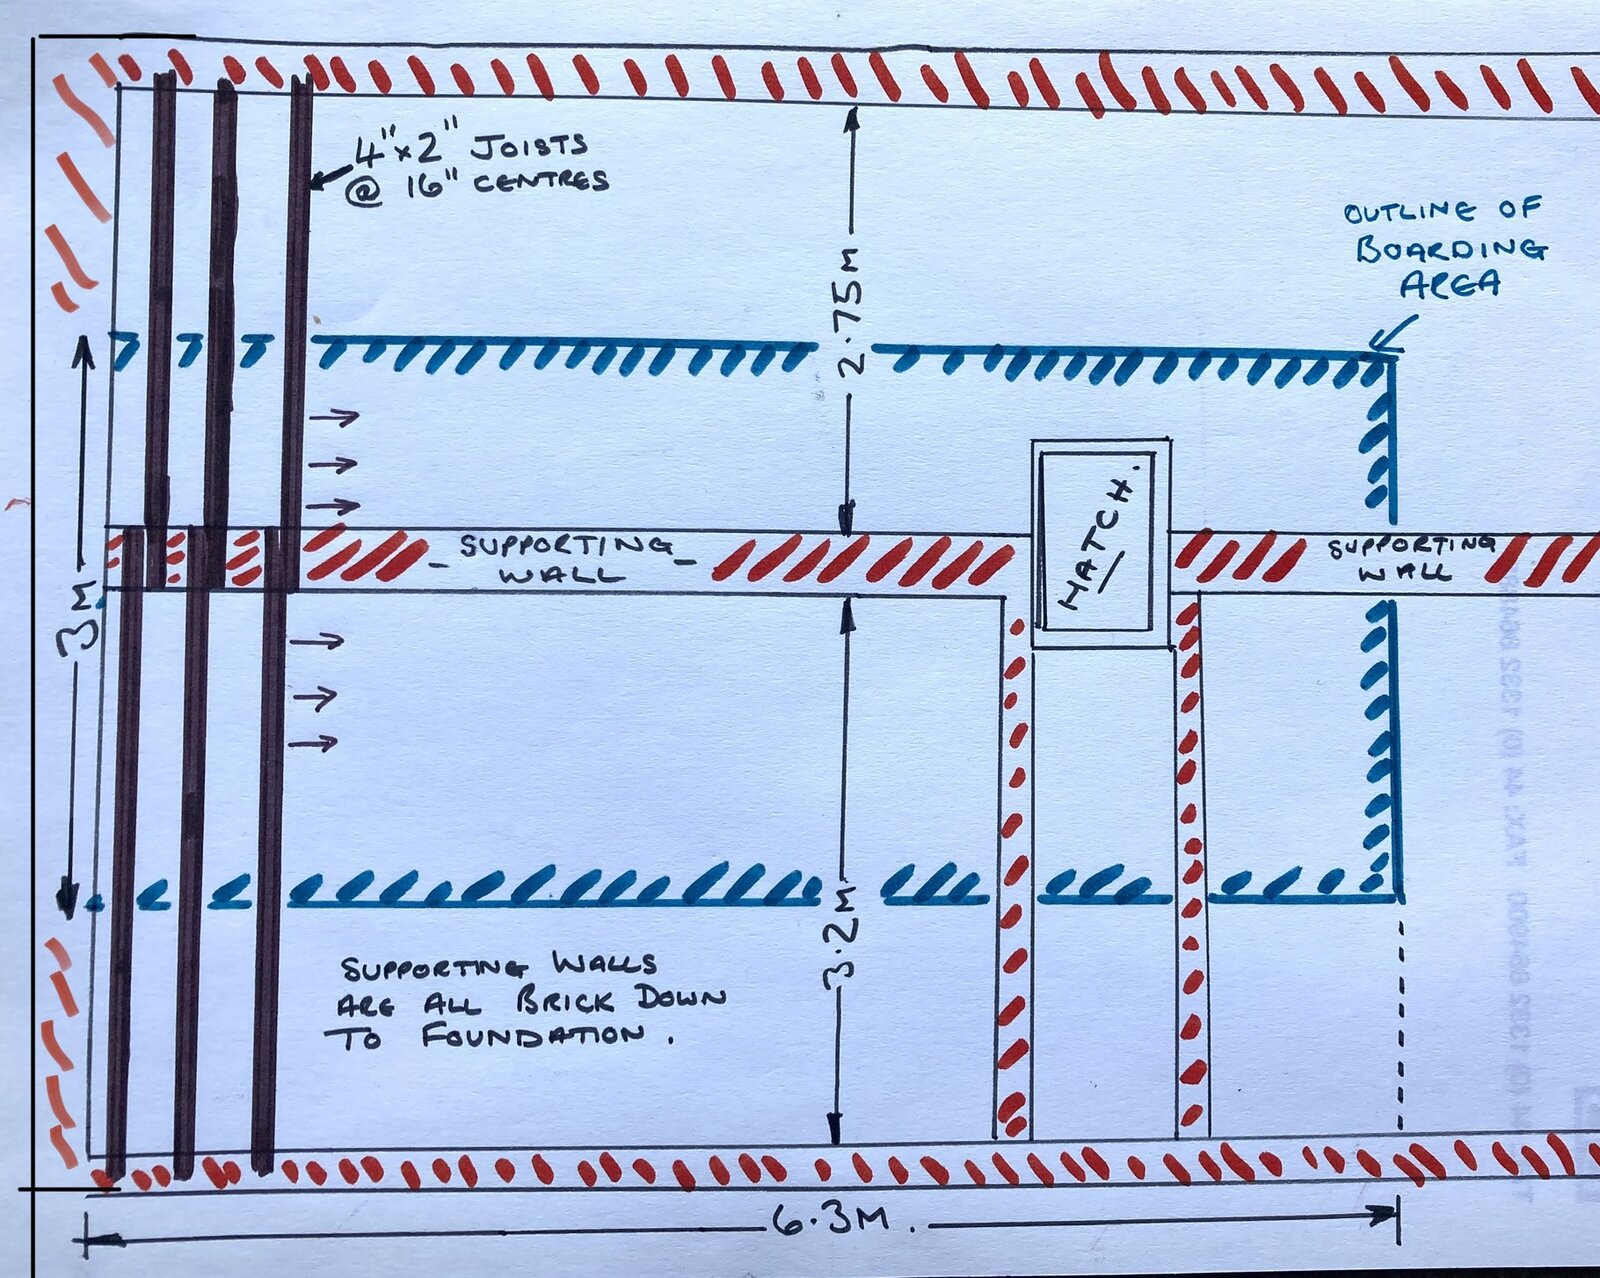 4"x2" JOISTS
@ 16" CENTRES
OUTLINE OF
BOARDING
AREA
2.75M
HATCH.
SUPPORTING
WALL
SUPPORTING
WALL
3M
3.2M
SUPPORTING WALLS
ARE ALL BRICK DOWN
TO FOUNDATION.
6.3M.